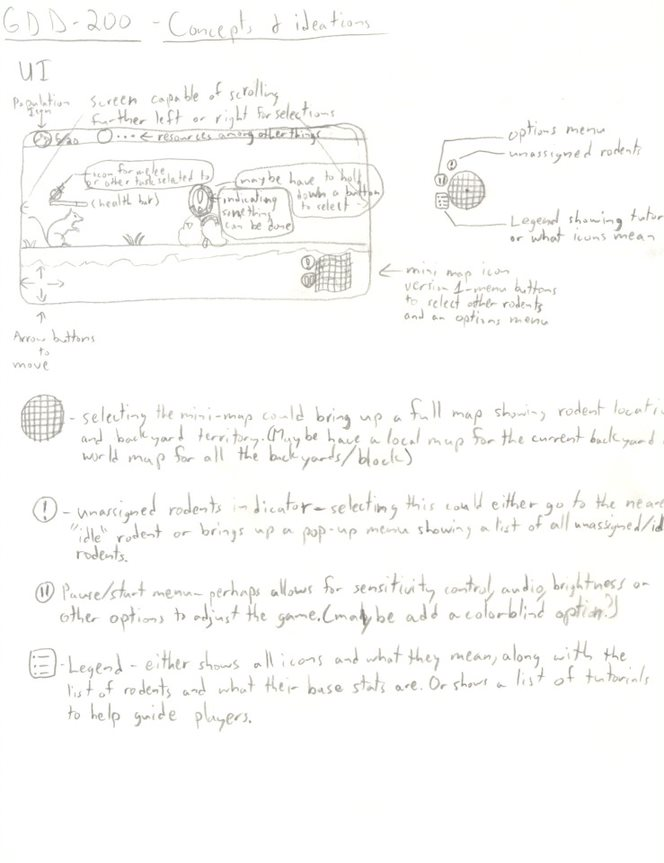 GDD-200 - Concepts & ideations
UI
Population
sign
screen capable of scrolling
further left or right for selections
5/20
... ← resources among other things
icon for melee
or other task related to
(health bar)
maybe have to hold
down a button
to select
indicating
something
can be done
options menu
unassigned rodents
Legend showing tutor
or what icons mean
← mini map icon
version 1 - menu buttons
to select other rodents
and an options menu
Arrow buttons
to
move
- selecting the mini-map could bring up a full map showing rodent locati
and backyard territory. (Maybe have a local map for the current backyard
world map for all the backyards/block)
! - unassigned rodents indicator - selecting this could either go to the neare
"idle" rodent or brings up a pop-up menu showing a list of all unassigned/id
rodents.
Pause/start menu - perhaps allows for sensitivity control, audio, brightness or
other options to adjust the game. (maybe add a colorblind option?)
- Legend - either shows all icons and what they mean, along with the
list of rodents and what their base stats are. Or shows a list of tutorials
to help guide players.